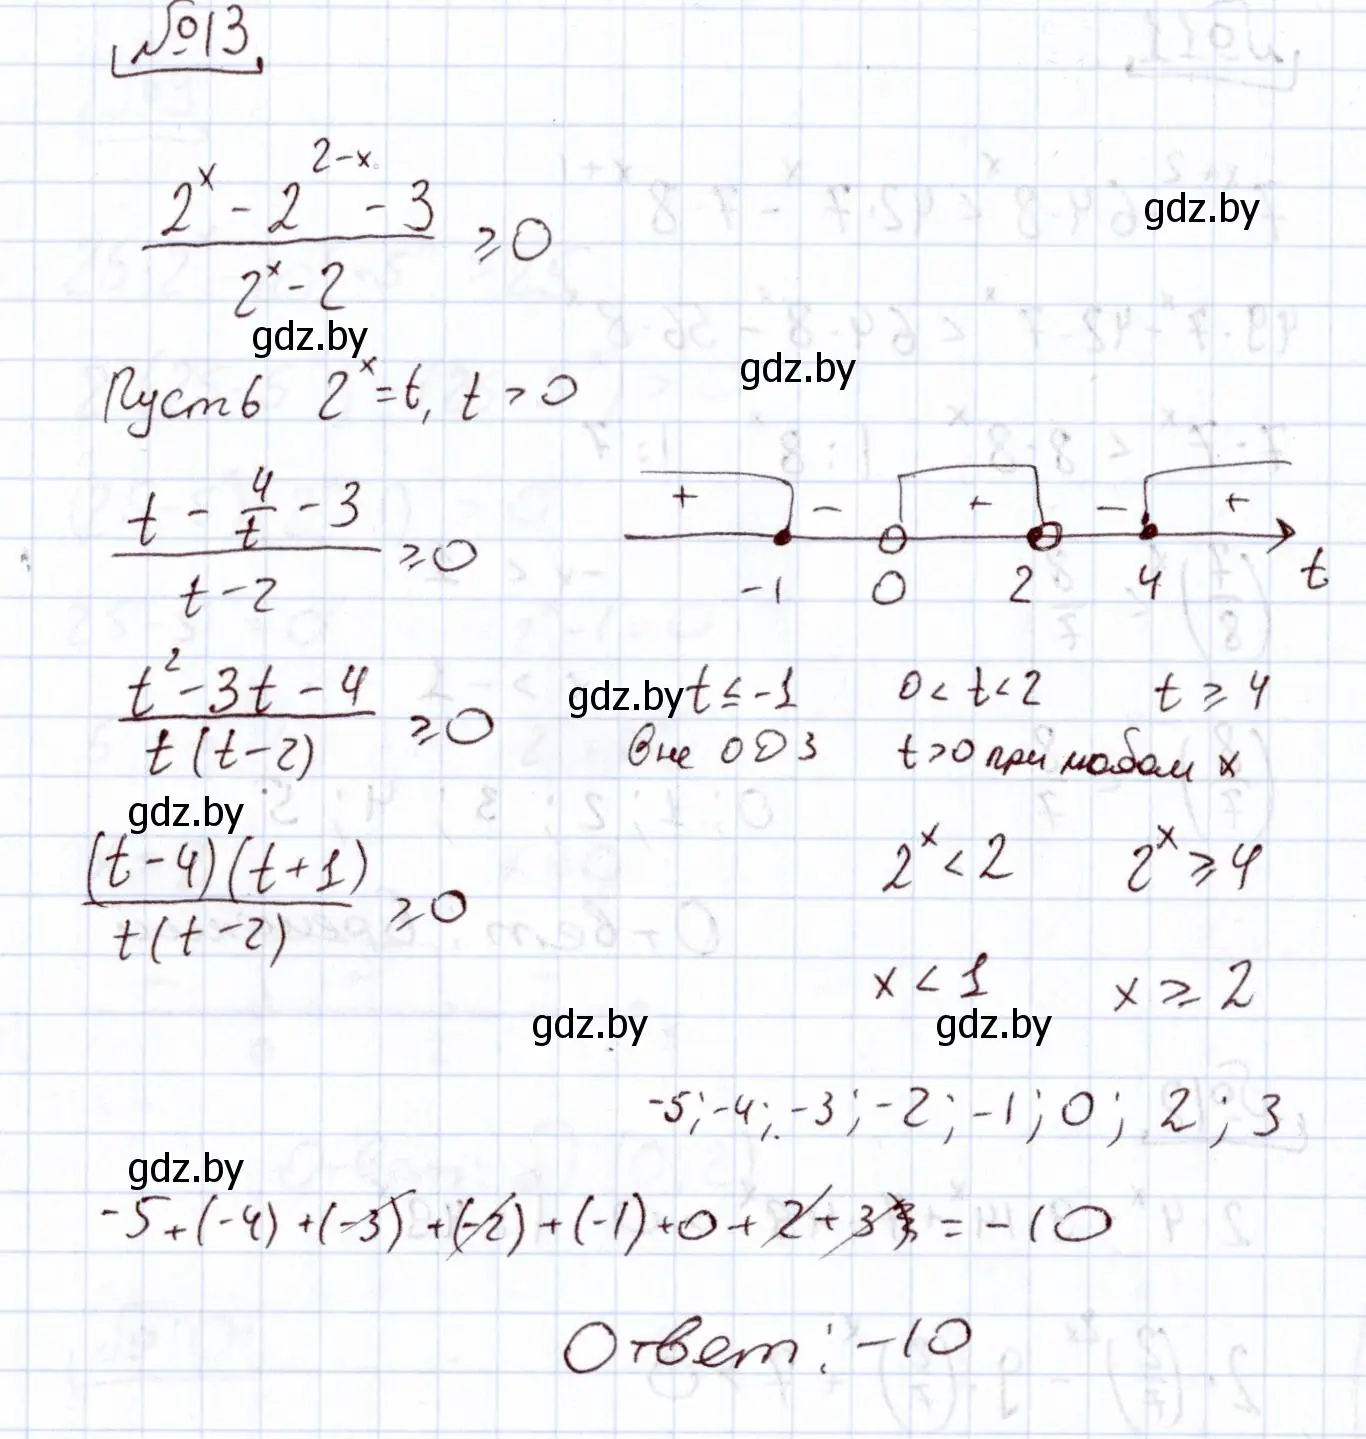 №13
2^x - 2^{2-x} - 3
――――― ≥ 0
2^x - 2
gdz.by
gdz.by
gdz.by
Пусть 2^x = t, t > 0
t - 4/t - 3
――――― ≥ 0
t - 2
+ - + - +
-1 0 2 4 t
t² - 3t - 4
――――― ≥ 0
t(t-2)
gdz.by t ≤ -1 0 < t < 2 t ≥ 4
вне ОДЗ t > 0 при любом x
gdz.by
(t-4)(t+1)
――――― ≥ 0
t(t-2)
2^x < 2 2^x ≥ 4
x < 1 x ≥ 2
gdz.by gdz.by
-5; -4; -3; -2; -1; 0; 2; 3
gdz.by
-5 + (-4) + (-3) + (-2) + (-1) + 0 + 2 + 3 = -10
Ответ: -10